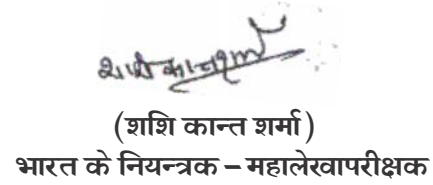 शशि कान्त शर्मा
(शशि कान्त शर्मा)
भारत के नियन्त्रक – महालेखापरीक्षक